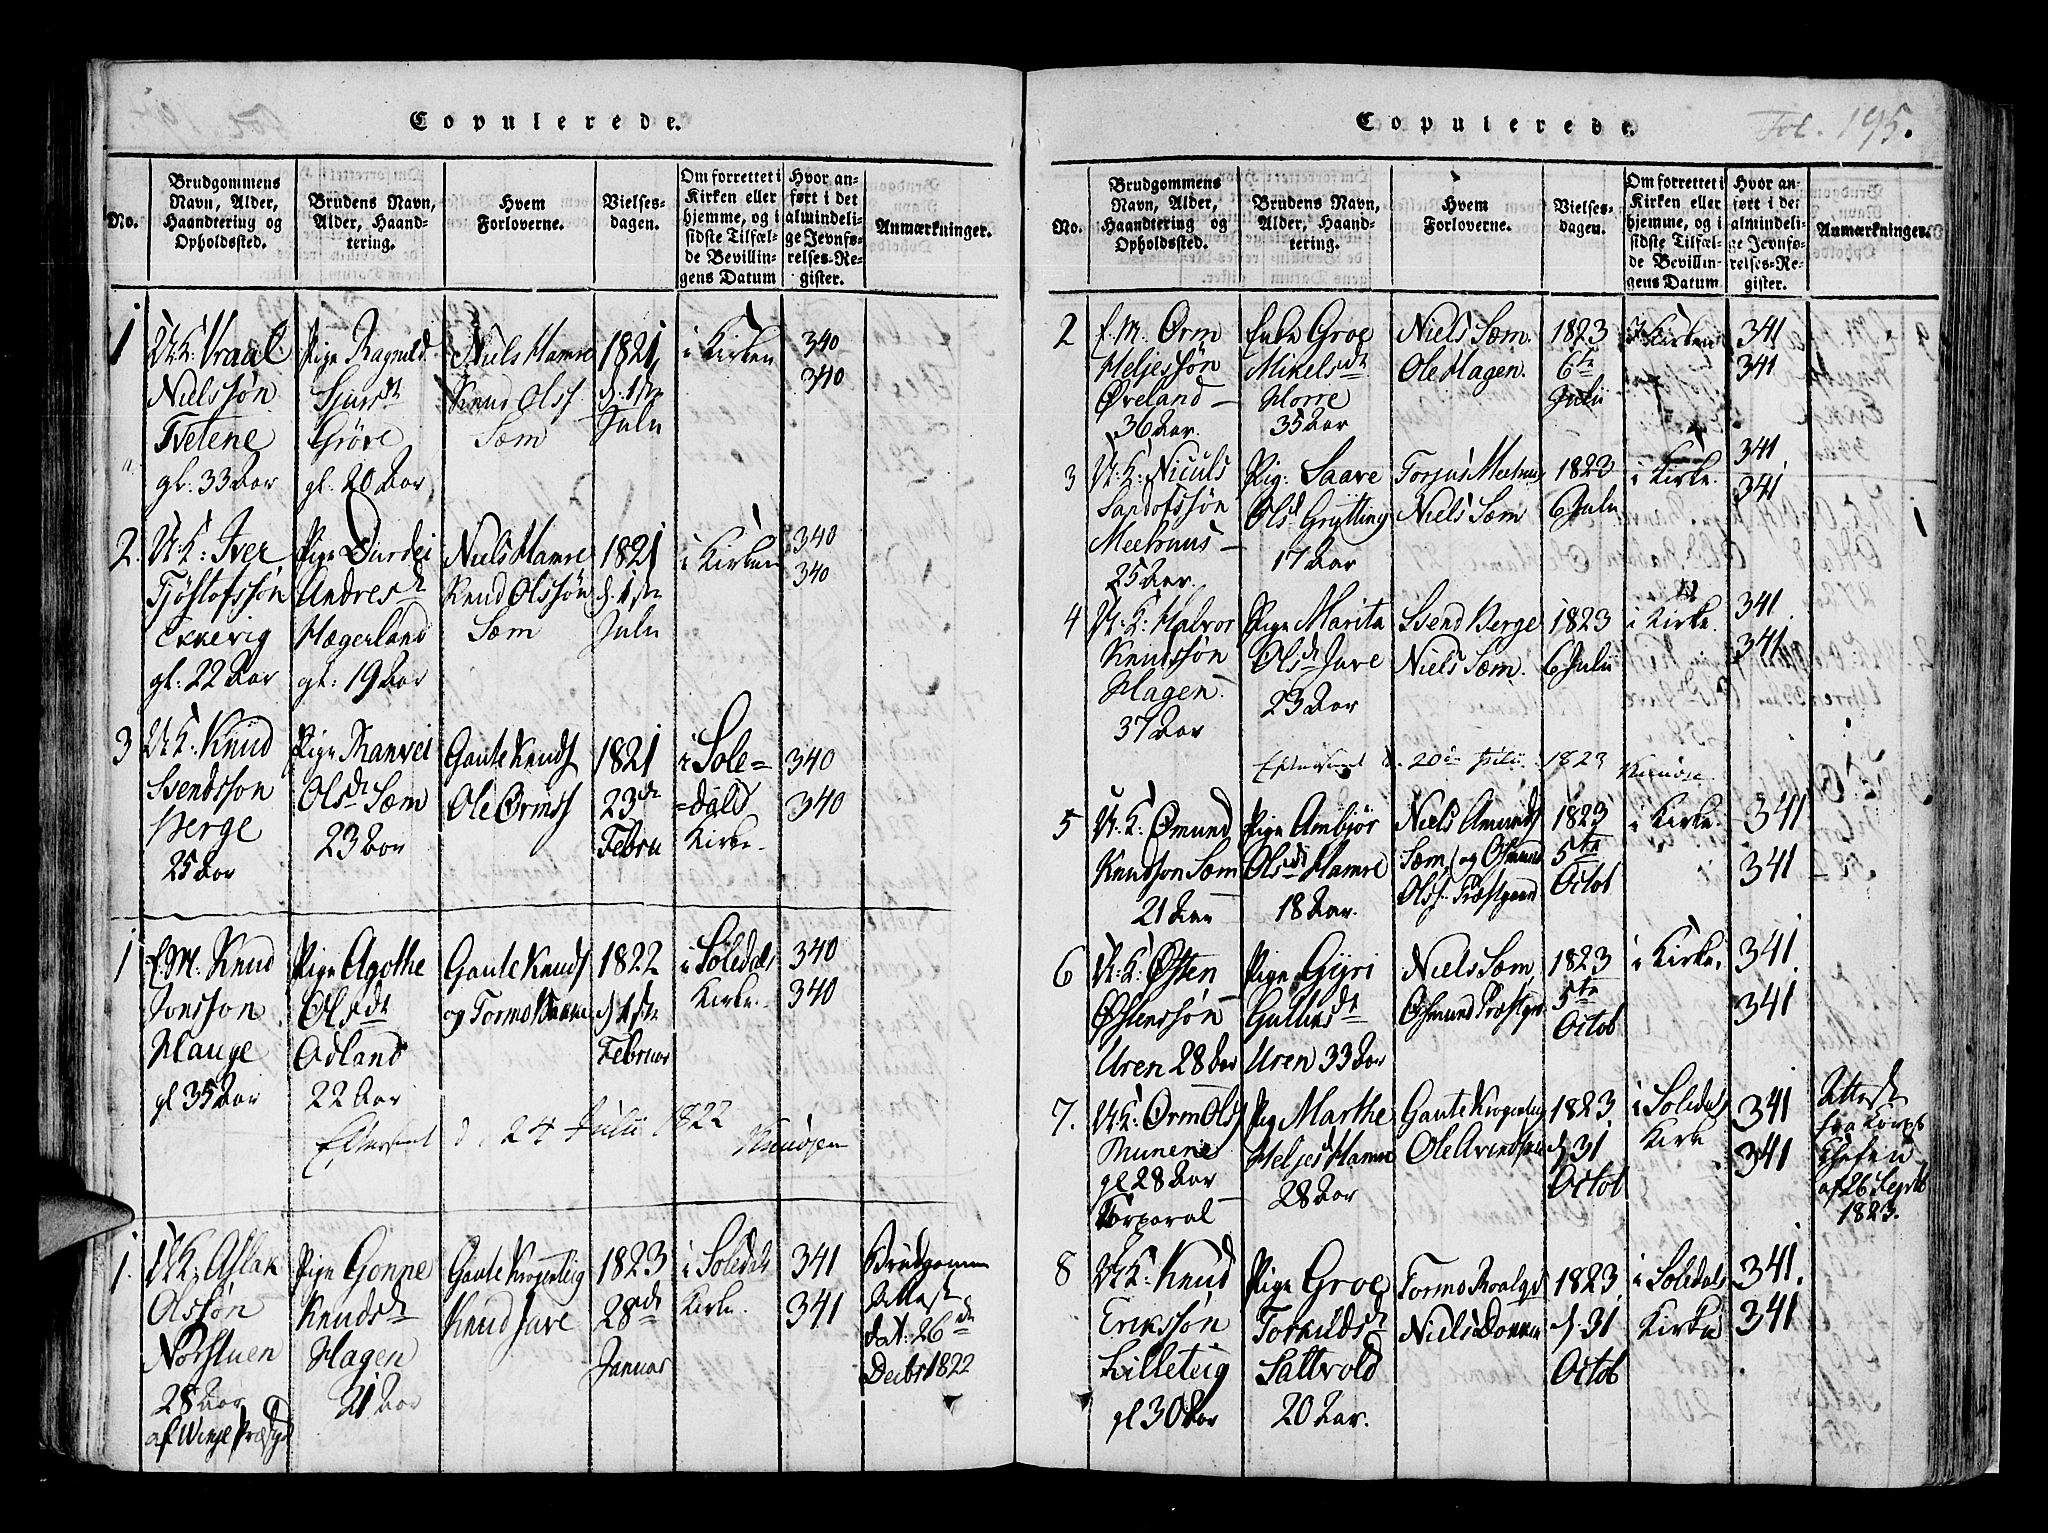 Copulerede.
No.
Brudgommens Navn, Alder, Haandtering og Opholdssted.
Brudens Navn, Alder, Haandtering.
Hvem Forloverne.
Vielsesdagen.
Om forrettet i Kirken eller hjemme, og i sidste Tilfælde Bevillingens Datum
Hvor anført i det almindelige Jevnførelses-Register.
Anmærkninger.
1
Nielssøn
Tvetene
gl. 33 Aar
Pige Ragnild
Grove
gl. 20 Aar
Niels Hamre
Knud Olss.
Sæm
1821
d. 1ste
Julii
i Kirken
340
340
2.
U.K: Iver
Tjøstofssøn
gl: 22 Aar
Pige Durdei
Andresdt
Hægerland
gl: 19 Aar
Niels Hamre
Knud Olssøn
Sæm
1821
d. 1ste
Julii
i Kirken
340
340
3
U.K. Knud
Svendsson
Berge
25 Aar
Pige Ranvei
Olsdt Sæm
23 Aar
Gaute Knuds
Ole Ormss
1821
23de
Febru
i Sole=
=dals
Kirke.
340
340
1
f.M. Knud
Jonsson
Hauge
gl 35 Aar
Pige Agothe
Olsdt
Odland
22 Aar
Gaute Knuds
og Tormo
1822
d 1ste
Februar
i Soledals
Kirke.
340
340
Efterseet d. 24 Julii 1822
Knudsen
1.
U.K: Aslak
Olssøn
Nordstuen
28 Aar
Pige Gonne
Knudsdt
Hagen
21 Aar
Gaute Krogenteig
Knud Jure
1823
28de
Januar
i Soledals
Kirke.
341
341
Brudgommens
Attest
dat: 26de
Decbr 1822
Copulerede.
Fol. 195.
No.
Brudgommens Navn, Alder, Haandtering og Opholdssted.
Brudens Navn, Alder, Haandtering.
Hvem Forloverne.
Vielsesdagen.
Om forrettet i Kirken eller hjemme, og i sidste Tilfælde Bevillingens Datum
Hvor anført i det almindelige Jevnførelses-Register.
Anmærkninger.
2
f.M. Orm
Heljessøn
Øveland
36 Aar.
Enke Groe
Mikelsdt
Horre
35 Aar
Niels Sæm.
Ole Hagen.
1823
6te
Julii
i Kirken
341
341
3
U.K: Niculs
25 Aar.
Pig. Saave
Olsd Grytting
17 Aar
Niels Sæm
1823
6 Julii
i Kirke.
341
341
4
U.K: Halvor
Knudssøn
Hagen
37 Aar
Pige Marita
Olsdt Jure
23 Aar
Svend Berge
Niels Sæm.
1823
6 Julii
i Kirke.
341
341
Efterseet d. 20de Julii 1823
Knudsen
5
U.K: Omund
Knudson Sæm
21 Aar
Pige Anbjør
Olsdt Hamre
18 Aar.
Niels Amunds
Sæm og Osmund
Olss. Præstgaard
1823
5te
Octob
i Kirke.
341
341
6
U.K: Østen
Østenssøn
Uren 28 Aar
Pige Gyri
Uren 33 Aar
Niels Sæm
Osmund Præstgrd
1823
5te
Octob
i Kirke.
341
341
7.
U.K: Orm Olss
Brunene
gl 28 Aar
Korporal
Pig Marthe
Heljesd Hamre
28 Aar
Gaute Krogenteig
1823
d 31
Octob
i Soledals
Kirke
341
341
Attest
fra Korps
Chefen
af 26 Septb
1823.
8
U.K: Knud
Erikssøn
Lilleteig
gl 30 Aar
Pige Groe
Torkildsdt
Sattvold
20 Aar.
Tormo
Niels
1823
d. 31
Octob
i Soledals
Kirke
341
341